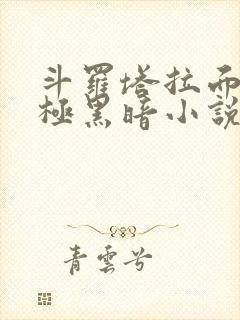 斗羅塔拉而
極黑暗小說
青雲兮